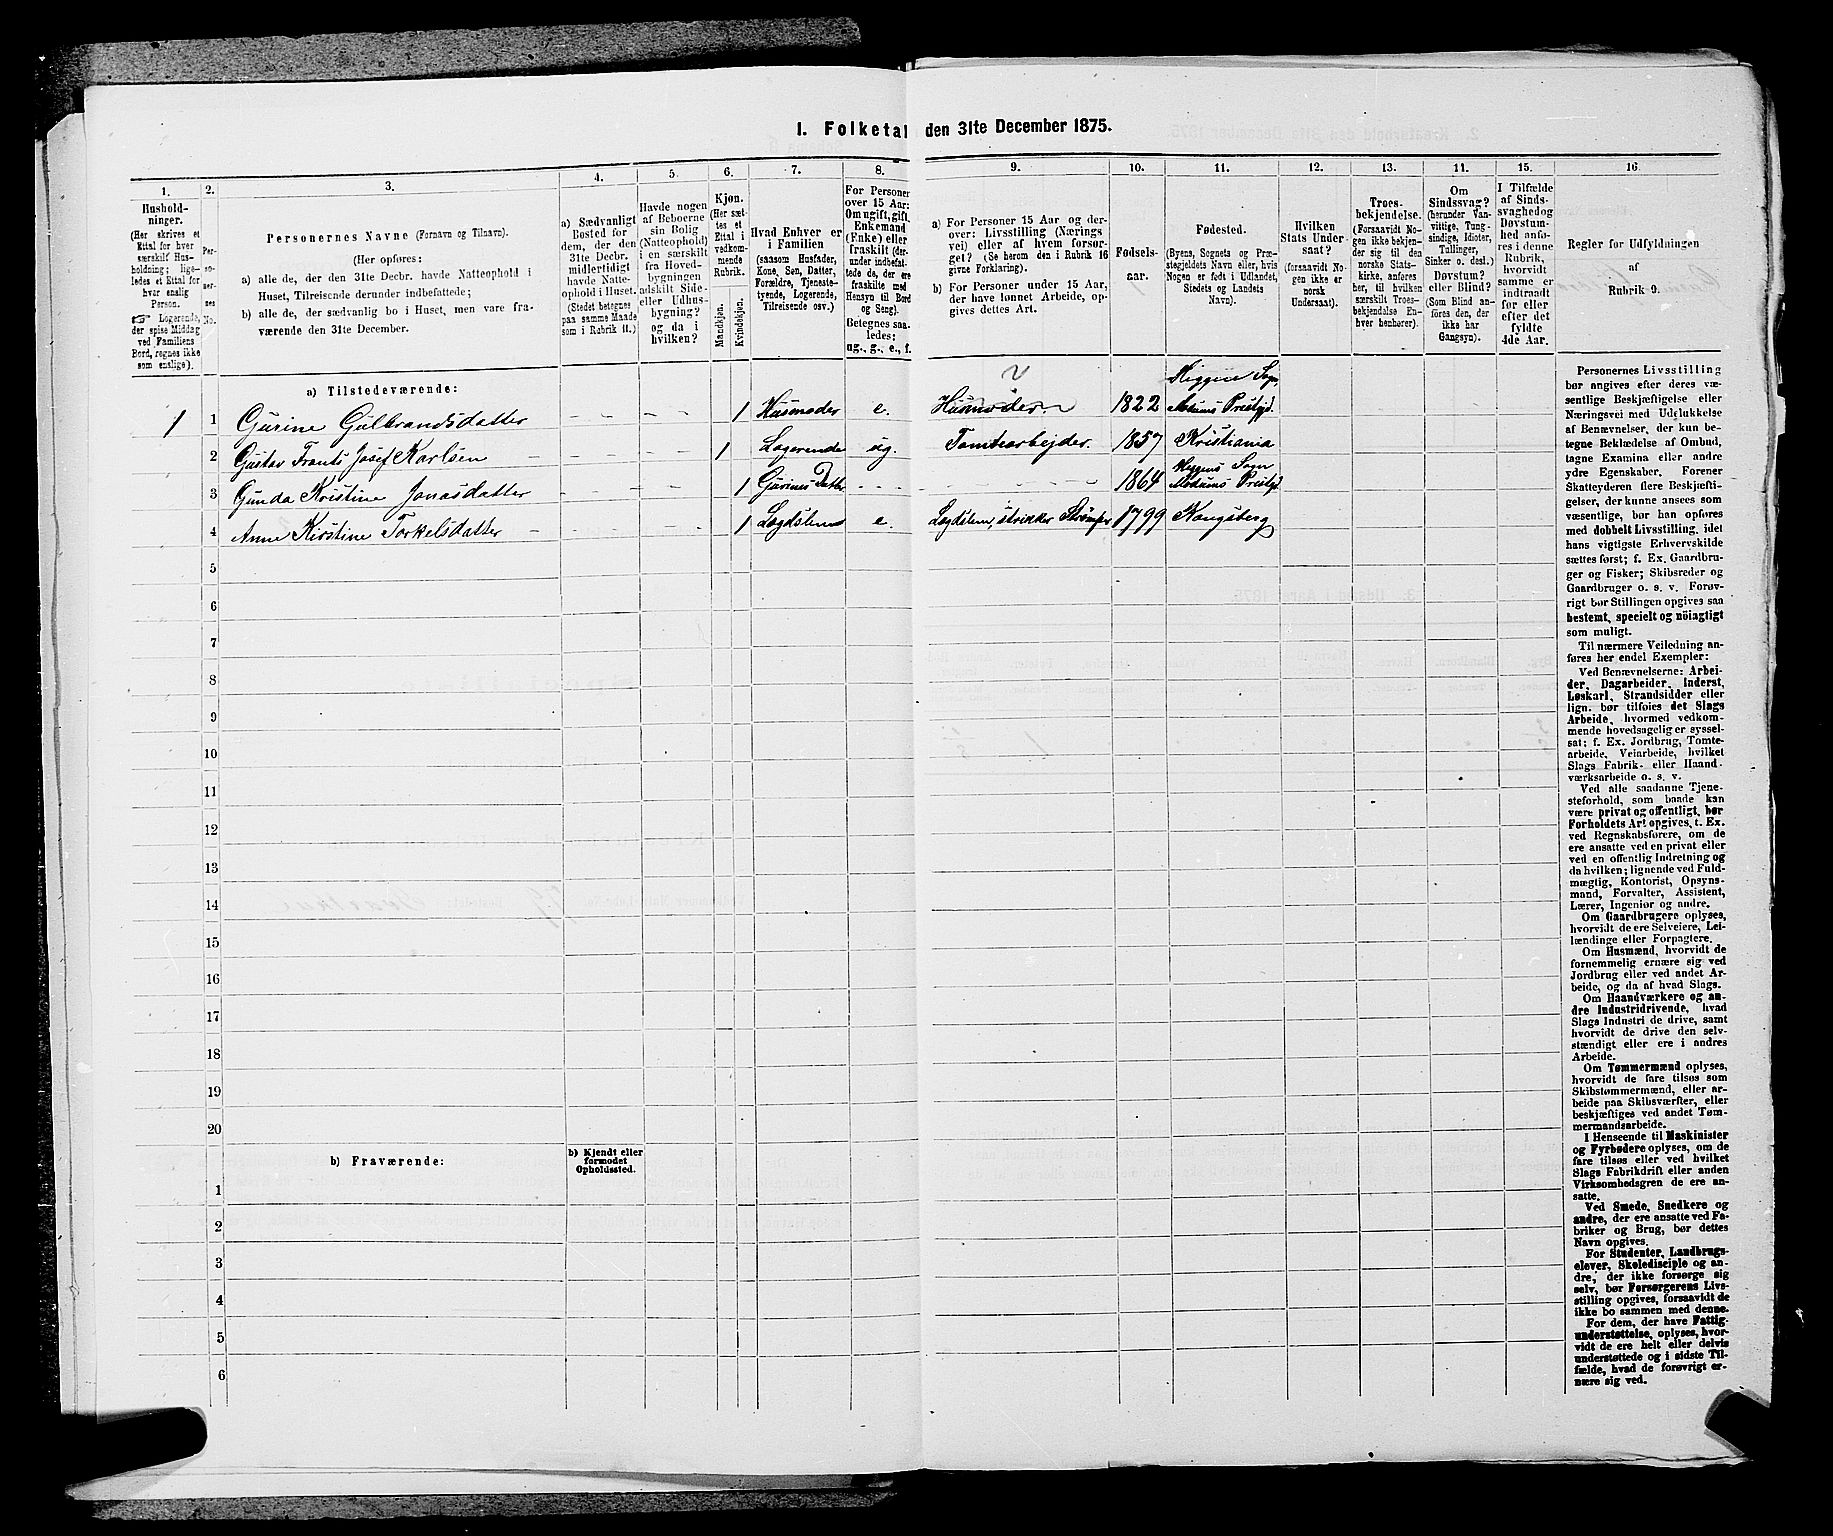 1. Folketal den 31te December 1875.
1.
2.
3.
4.
5.
6.
7.
8.
9.
10.
11.
12.
13.
11.
15.
16
Hushold-
ninger.
(Her skrives et
Ettal for hver
særskilt Hus-
holdning; lige-
ledes et Ettal for
hver enslig
Person.
☞ Logerende,
der spise Middag
ved Familiens
Bord, regnes ikke
som enslige).
Per-
so-
ner-
nes
No.
Personernes Navne (Fornavn og Tilnavn).
(Her opføres:
a) alle de, der den 31te Decbr. havde Natteophold i
Huset, Tilreisende derunder indbefattede;
b) alle de, der sædvanlig bo i Huset, men vare fra-
værende den 31te December.
a) Sædvanligt
Bosted for
dem, der den
31te Decbr.
midlertidigt
havde Natte-
ophold i Huset.
(Stedet betegnes
paa samme Maade
som i Rubrik 11.)
Havde nogen
af Beboerne
sin Bolig
(Natteophold)
i en særskilt
fra Hoved-
bygningen
adskilt Side-
eller Udhus-
bygning?
og da i
hvilken?
Kjøn.
(Her sæt-
tes et
Ettal i
vedkom-
mende
Rubrik.
Mandkjøn.
Kvindekjøn.
Hvad Enhver er
i Familien
(saasom Husfader,
Kone, Søn, Datter,
Forældre, Tjeneste-
tyende, Logerende,
Tilreisende osv.)
For Personer
over 15 Aar:
Om ugift, gift,
Enkemand
(Enke) eller
fraskilt (der-
under indbefat-
tede de, der ere
fraskilte med
Hensyn til Bord
og Seng).
Betegnes saa-
ledes:
ug., g., e., f.
a) For Personer 15 Aar og der-
over: Livsstilling (Nærings
vei) eller af hvem forsør-
get? (Se herom den i Rubrik 16
givne Forklaring).
b) For Personer under 15 Aar,
der have lønnet Arbeide, op-
gives dettes Art.
Fødsels-
aar.
Fødested.
(Byens, Sognets og Præ-
stegjeldets Navn eller, hvis
Nogen er født i Udlandet,
Stedets og Landets
Navn).
Hvilken
Stats Under-
saat?
(forsaavidt No-
gen ikke er
norsk
Undersaat).
Troes-
bekjendelse.
(Forsaavidt Nogen ikke bekjen-
der sig til den
norske Stats-
kirke, anføres
her, til hvilken
særskilt Troes-
bekjendelse En-
hver henhører).
Om
Sindssvag?
(herunder Van-
vittige, Tung-
sindige, Idioter,
Tullinger,
Sinker o. desl.)
Døvstum?
eller Blind?
(Som Blind an-
føres den, der
ikke har
Gangsyn).
I Tilfælde
af Sinds-
svaghed og
Døvstum-
hed anfø-
res i denne
Rubrik,
hvorvidt
samme er
indtraadt
før eller
efter det
fyldte
4de Aar.
Regler for Udfyldningen
af
Rubrik 9.
a) Tilstedeværende:
1 1 Gurine Gulbrandsdatter 1 Husmoder e. Husmoder 1822 Higgens Sogn Modums Prestgj.
2 Gustav Frants Josef Karlsen 1 Logerende ug. Tomtearbejder. 1857 Kristiania
3 Gunda Kristine Jonasdatter 1 Gurines Datter 1864 Heggens Sogn Modums Prestgj.
4 Anne Kirstine Torkelsdatter 1 Lægdslem e. Lægdslem, strikker Strømper 1799 Kongsberg
5
6
7
8
9
10
11
12
13
14
15
16
17
18
19
20
b) Fraværende:
b) Kjendt eller
formodet
Opholdssted.
1
2
3
4
5
6
Personernes Livsstilling
bør angives efter deres væ-
sentlige Beskjæftigelse eller
Næringsvei med Udelukkelse
af Benævnelser, der kun be-
tegne Beklædelse af Ombud,
tagne Examina eller andre
ydre Egenskaber. Forener
Skatteyderen flere Beskjæfti-
gelser, der kunne ansees som
væsentlige, bør han opføres
med dobbelt Livsstilling, idet
hans vigtigste Erhvervskilde
sættes først; f. Ex. Gaardbru-
ger og Fisker; Skibsreder og
Gaardbruger o. s. v. Forøv-
rigt bør Stillingen opgives saa
bestemt, specielt og nöiagtigt
som muligt.
Til nærmere Veiledning an-
føres her endel Exempler:
Ved Benævnelserne: Arbei-
der, Dagarbeider, Inderst,
Løskarl, Strandsidder eller
lign. bør tilføies det Slags
Arbeide, hvormed vedkom-
mende hovedsagelig er syssel-
sat; f. Ex. Jordbrug, Tomte-
arbeide, Veiarbeide, hvilket
Slags Fabrik- eller Haand-
værksarbeide o. s. v.
Ved alle saadanne Tjene-
steforhold, som baade kan
være privat og offentligt, bør
Forholdets Art opgives, t. Ex.
ved Regnskabsførere, om de
ere ansatte ved en privat eller
ved en offentlig Indretning og
da hvilken; lignende ved Fuld-
mægtig, Kontorist, Opsyns-
mand, Forvalter, Assistent,
Lærer, Ingeniør og andre.
Om Gaardbrugere oplyses,
hvorvidt de ere Selveiere, Lei-
lændinge eller Forpagtere.
Om Husmænd, hvorvidt de
fornemmelig ernære sig ved
Jordbrug eller ved andet Ar-
beide, og da af hvad Slags.
Om Haandværkere og an-
dre Industridrivende, hvad
Slags Industri de drive, samt
hvorvidt de drive den selv-
stændigt eller ere i andres
Arbeide.
Om Tømmermænd oplyses,
hvorvidt de fare tilsøs som
Skibstømmermænd, eller ar-
beide paa Skibsværfter, eller
beskjæftiges ved andet Tøm-
mermandsarbeide.
I Henseende til Maskinister
og Fyrbødere oplyses, om de
fare tilsøs eller ved hvilket
Slags Fabrikdrift eller anden
Virksomhedsgren de ere an-
satte.
Ved Smede, Snedkere og
andre, der ere ansatte ved Fa-
briker og Brug, bør dettes
Navn opgives.
For Studenter, Landbrugs-
elever, Skoledisciple og an-
dre, der ikke forsørge sig
selv, bør Forsørgerens Livs-
stilling opgives, forsaavidt de
ikke bo sammen med denne.
For dem, der have Fattig-
understøttelse, oplyses, hvor-
vidt de ere helt eller delvis
understøttede og i sidste Til-
fælde, hvad de forøvrigt er-
nære sig ved.